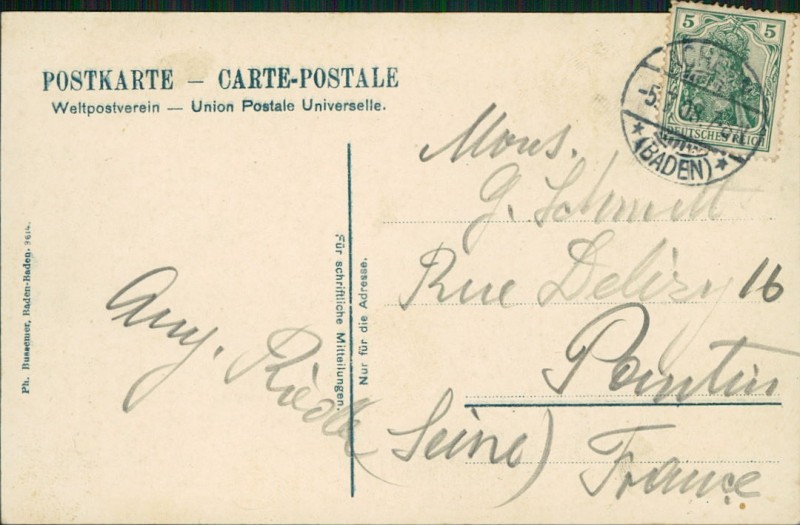 POSTKARTE — CARTE-POSTALE
Weltpostverein — Union Postale Universelle.
5 5
DEUTSCHES REICH
★ (BADEN) ★
Mons.
G. Schmitt
Rue Delizy 16
Pantin
(Seine)
France
Aug. Riedle
Für schriftliche Mitteilungen.
Nur für die Adresse.
Ph. Bussemer, Baden-Baden. 3614.